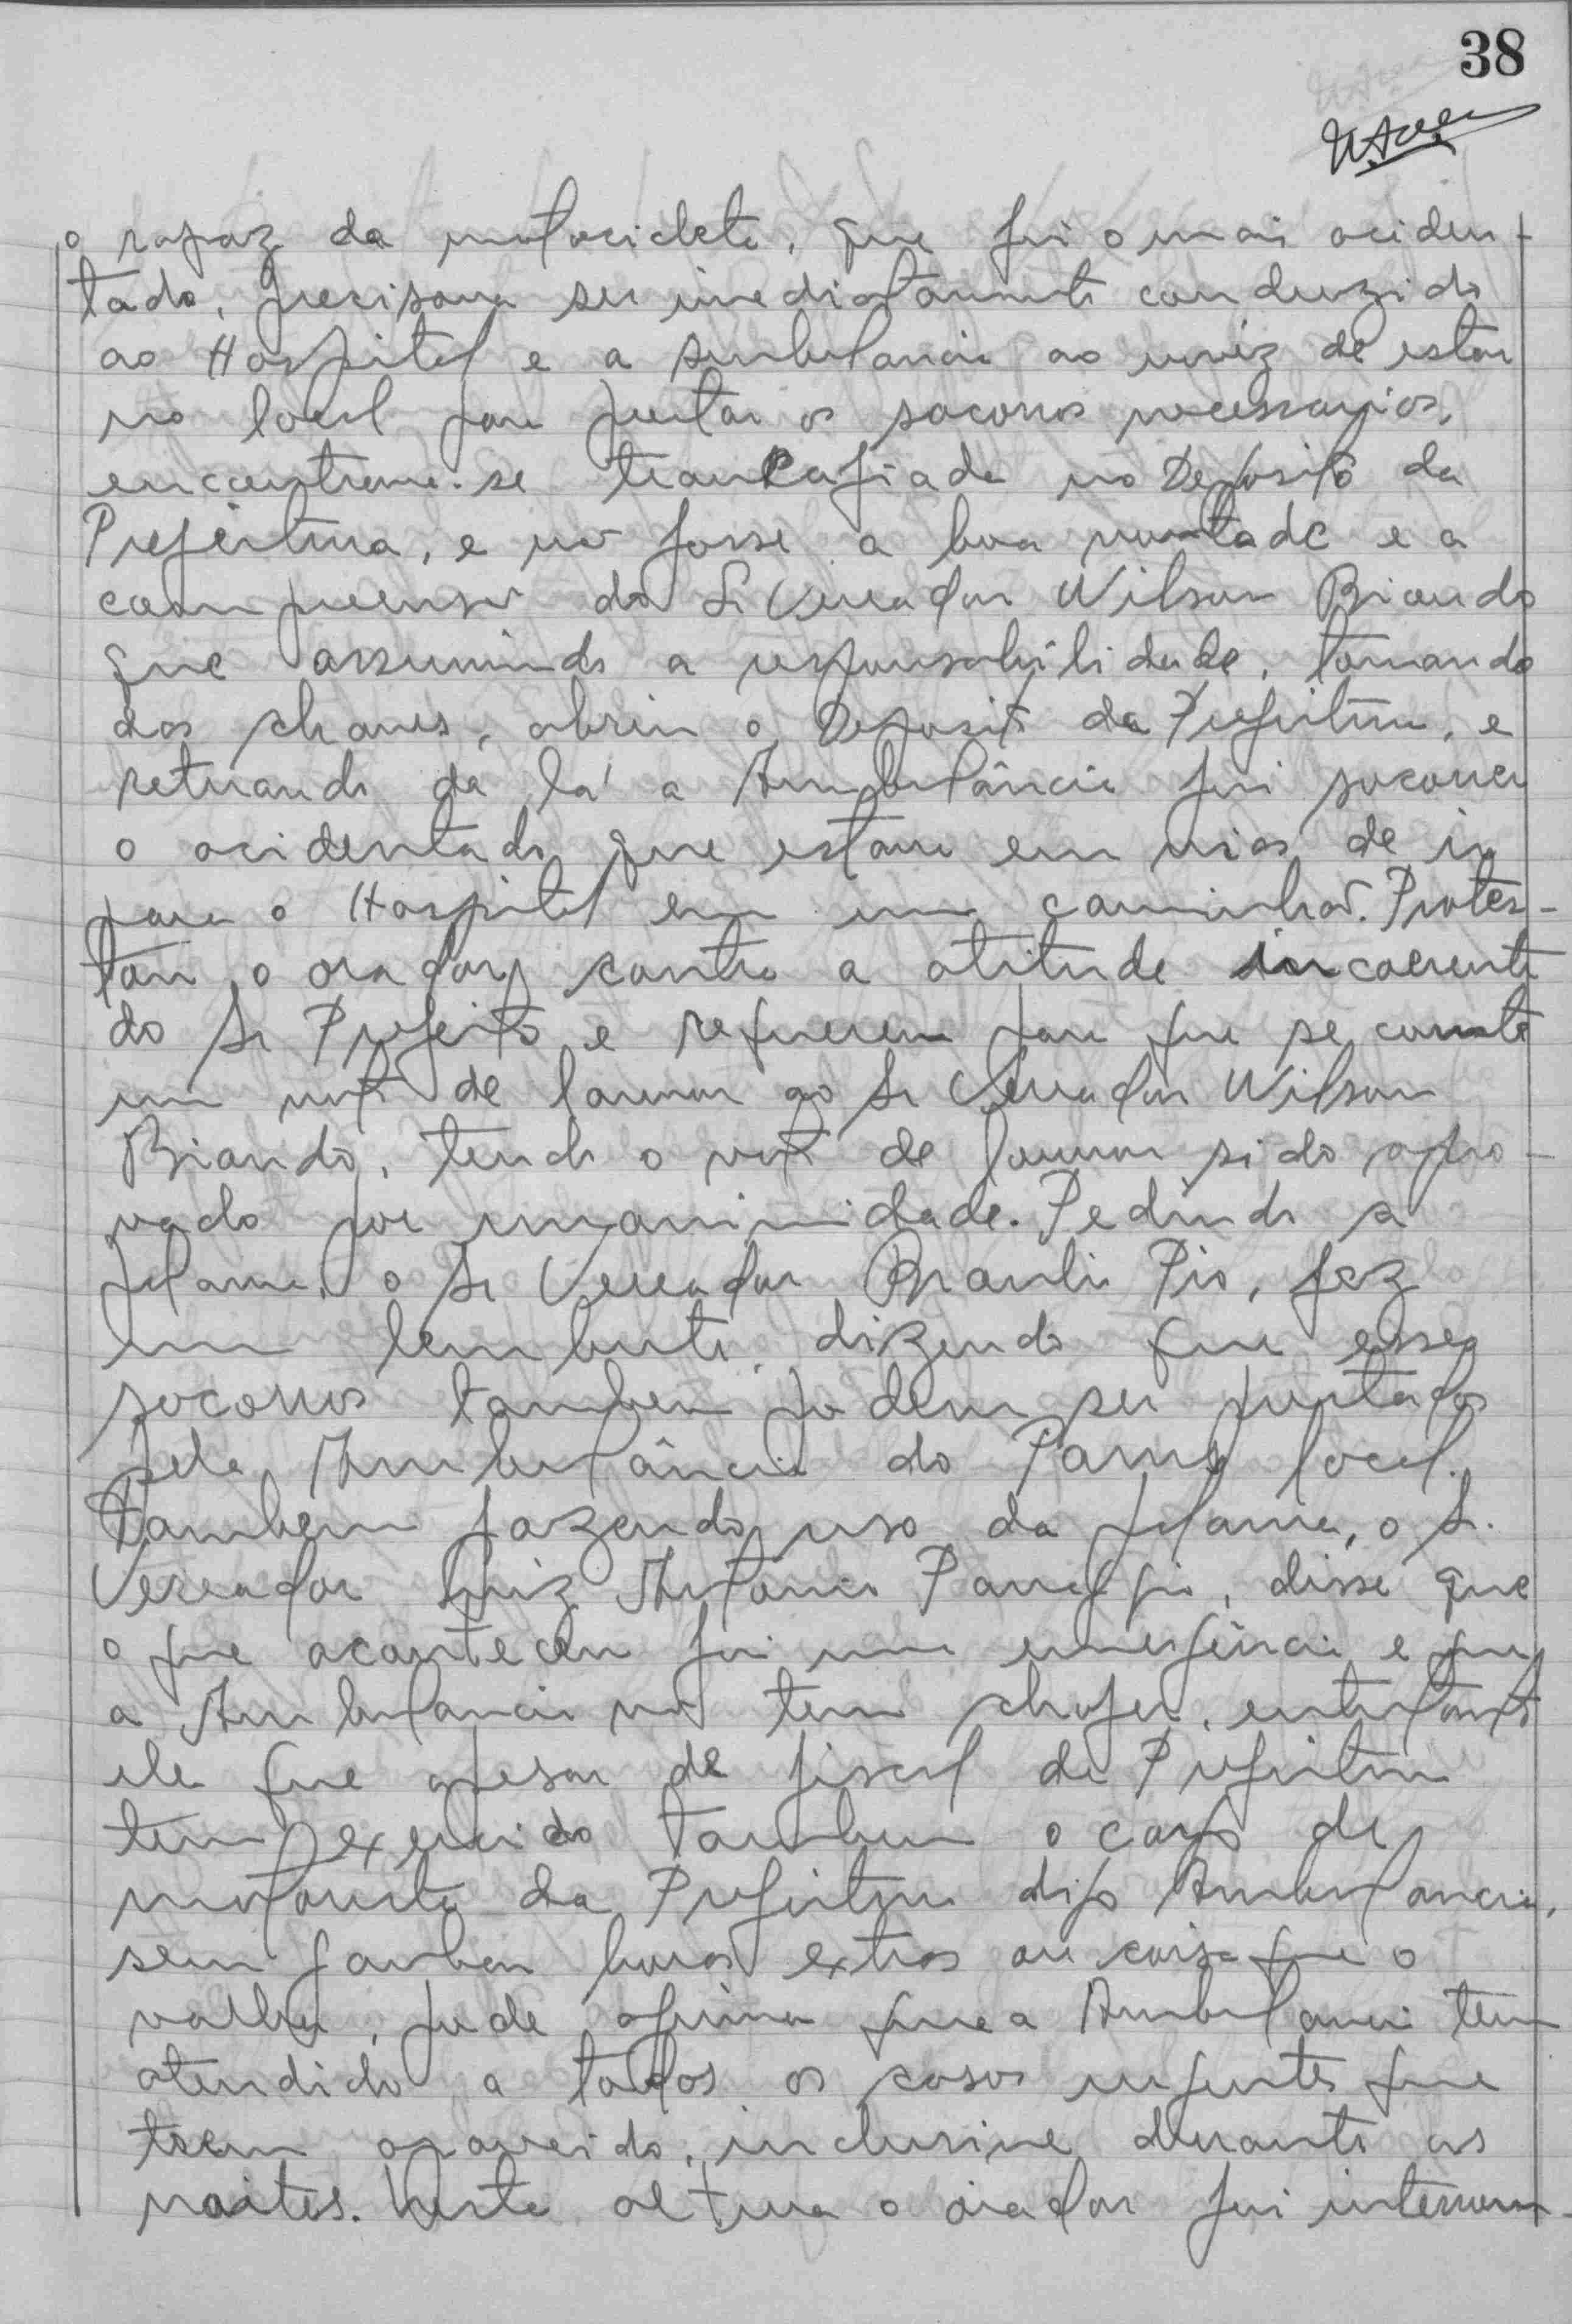 38
o rapaz da motocicleta, que foi o mais aciden-
tado, precisava ser imediatamente conduzido
ao Hospital e a Ambulancia ao invéz de estar
no local para prestar os socorros necessarios,
encontrava-se trancafiada no Deposito da
Prefeitura, e não fosse a boa vontade e a
compreensão do Sr Vereador Wilson Biando
que assumindo a responsabilidade, tomando
das chaves, abriu o Deposito da Prefeitura, e
retirando de lá a Ambulância foi socorrer
o acidentado que estava em vias de ir
para o Hospital em um caminhão. Protes-
tou o orador contra a atitude incoerente
do Sr Prefeito e requereu para que se conste
um voto de louvor ao Sr Vereador Wilson
Biando, tendo o voto de louvor sido apro-
vado por unanimidade. Pedindo a
palavra, o Sr Vereador Braulio Pio, fez
um lembrete, dizendo que esses
socorros tambem podem ser prestados
pela Ambulância do local.
Tambem fazendo uso da palavra, o Sr.
Vereador Luiz Antonio disse que
o que aconteceu foi uma emergência e que
a Ambulancia não tem chofer, entretanto
ele que apesar de fiscal da Prefeitura
tem exercido tambem o cargo de
motorista da Prefeitura digo Ambulancia,
sem ganhar horas extras ou coisa que o
valha, pode afirmar que a Ambulancia tem
atendido a todos os casos urgentes que
tem aparecido, inclusive durante as
noites. Nesta altura o orador foi interrom-